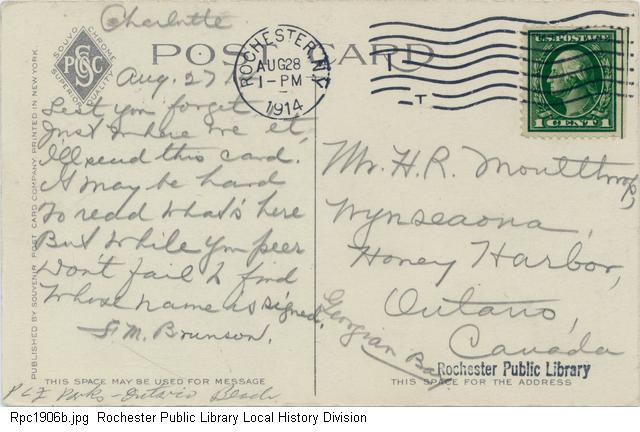 Charlotte
POST CARD
SOUVO CHROME
PCSC
SUPERIOR QUALITY
Aug. 27
ROCHESTER, N.Y.
AUG 28
1-PM
1914
T
T
U.S. POSTAGE
1 CENT 1
Lest you forget
Just where we et,
I'll send this card.
It may be hard
To read what's here
But while you peer
Don't fail to find
Whose name is signed.
F. M. Brunson.
Mr. H. R. Moulthrop,
Wynseaona,
Honey Harbor,
Ontario,
Canada
Georgian Bay
Rochester Public Library
PUBLISHED BY SOUVENIR POST CARD COMPANY PRINTED IN NEW YORK.
THIS SPACE MAY BE USED FOR MESSAGE
THIS SPACE FOR THE ADDRESS
Parks - Ontario Beach
Rpc1906b.jpg Rochester Public Library Local History Division